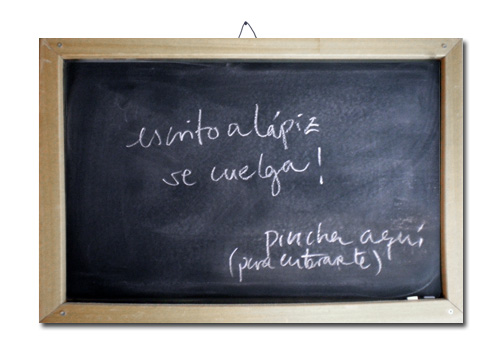 escrito a lápiz
se cuelga!
pincha aquí
(para enterarte)